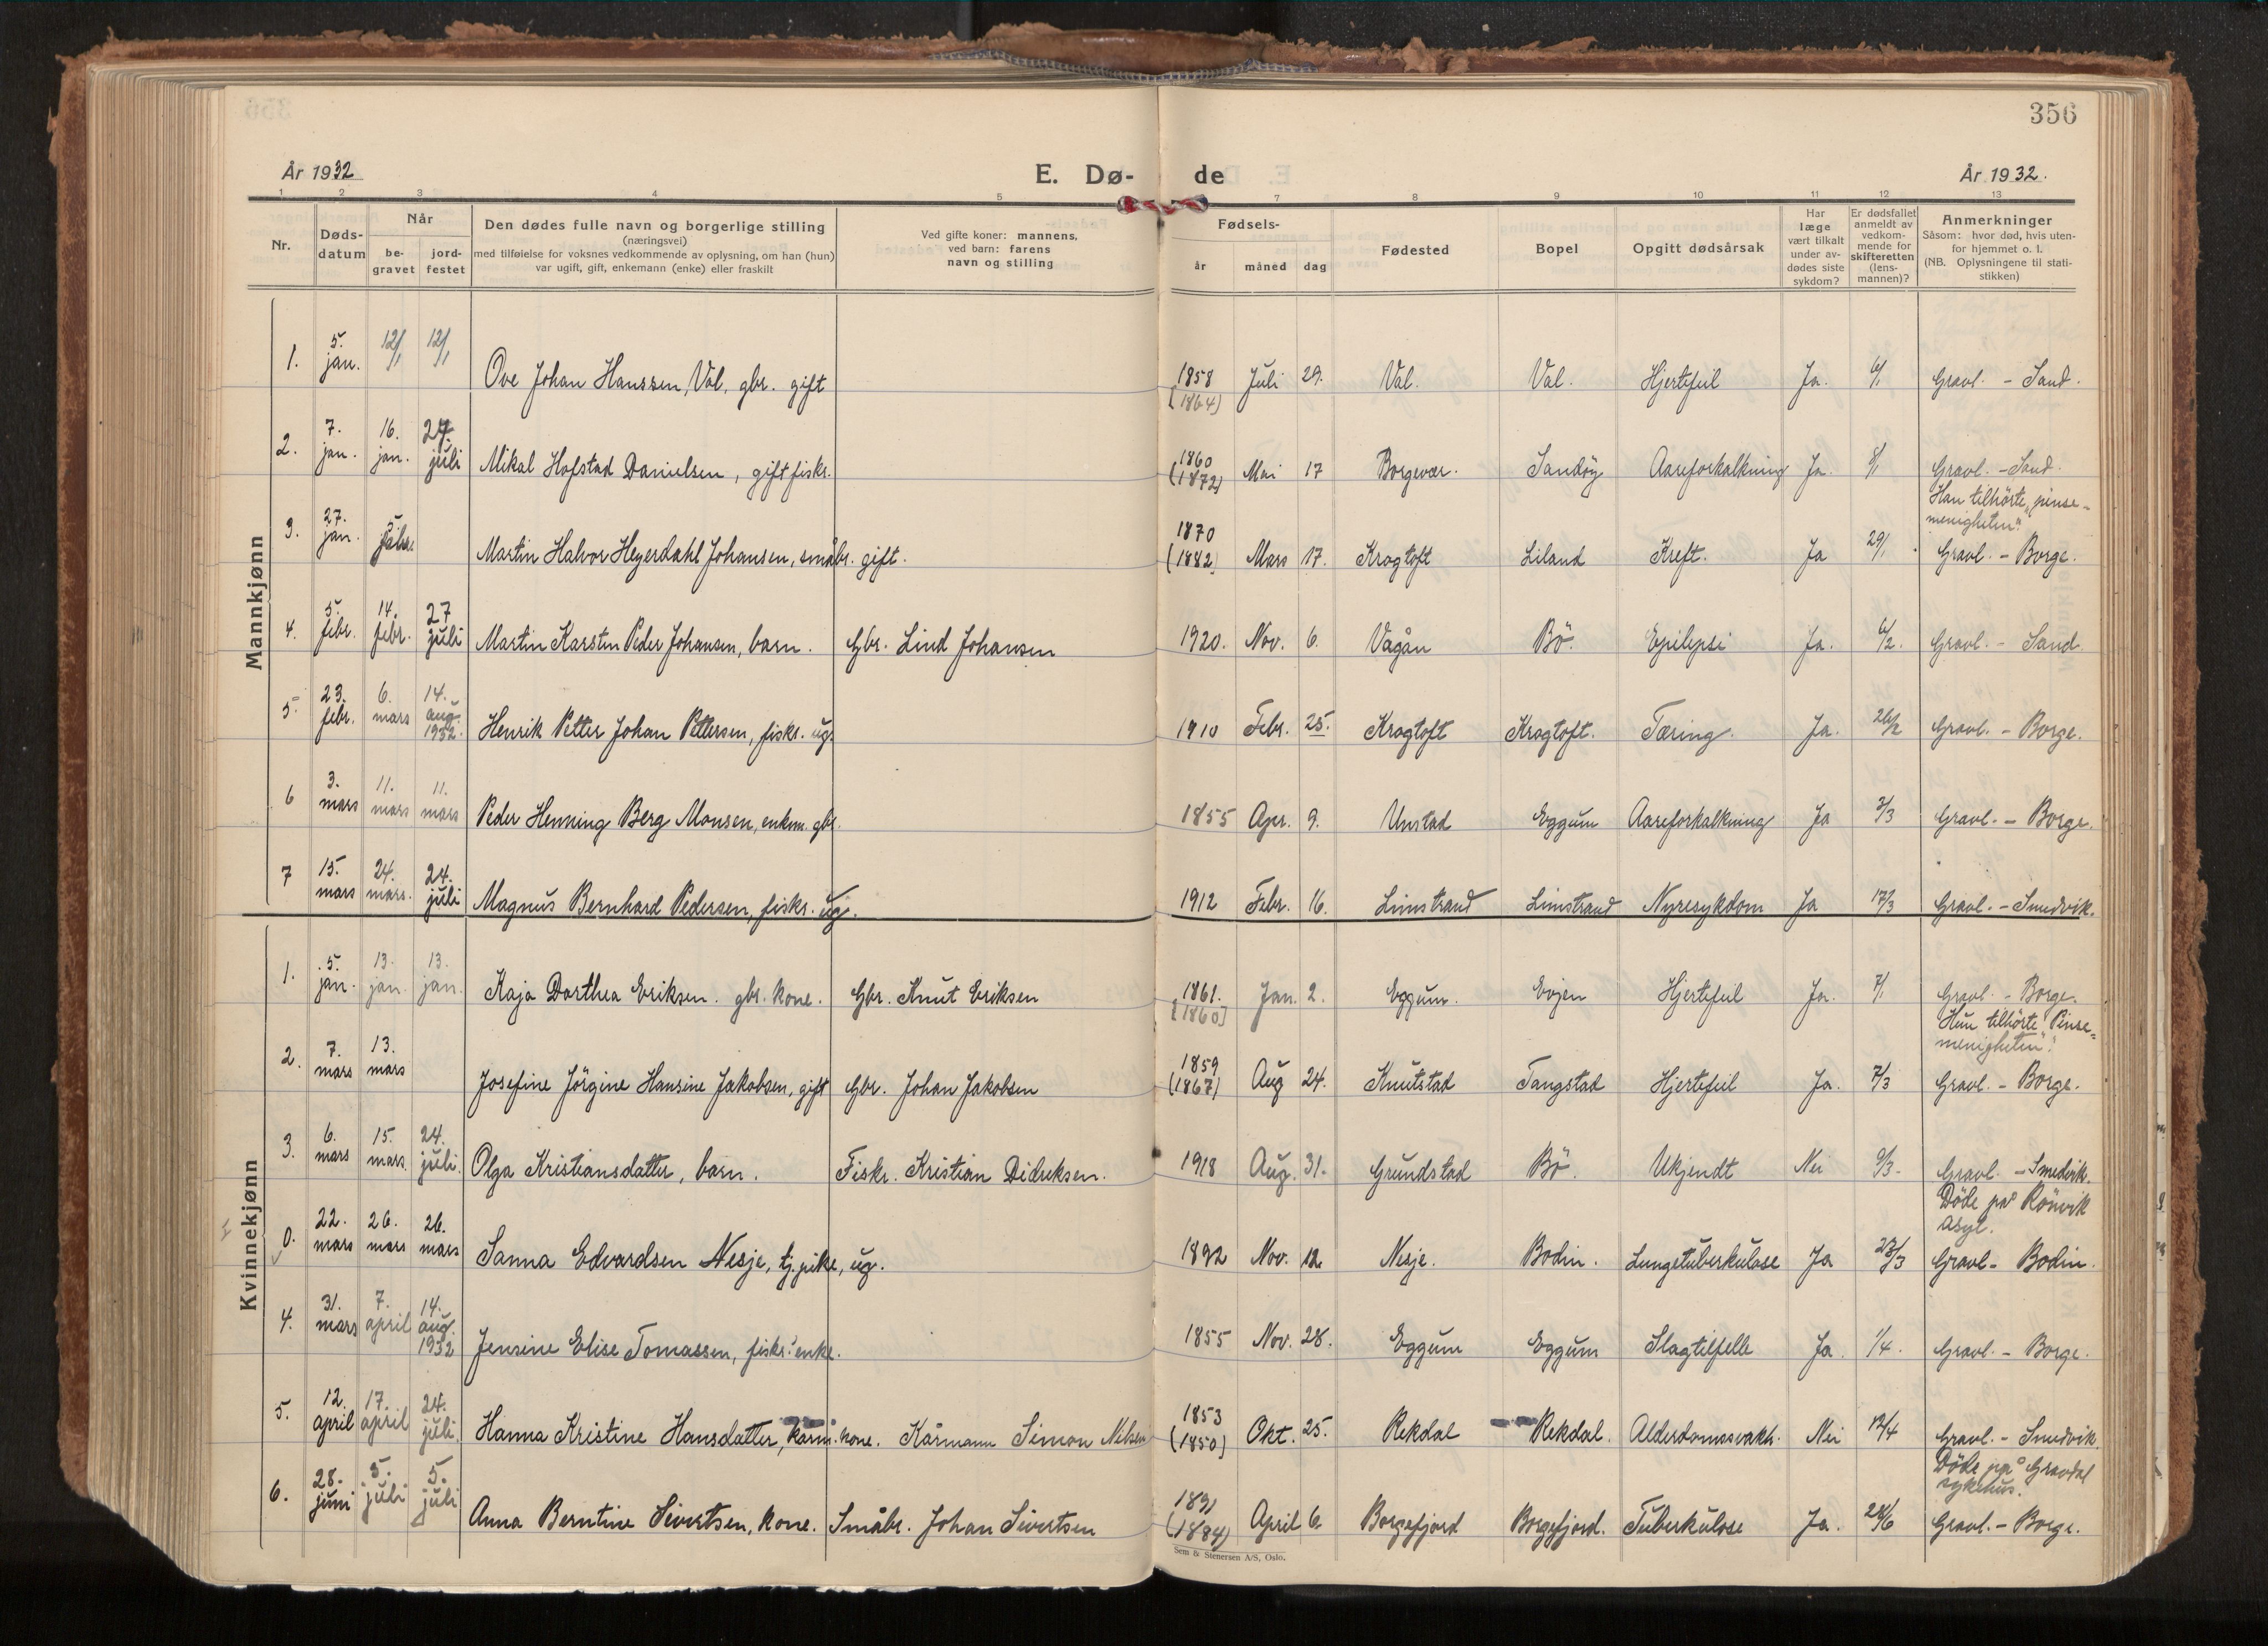 356
År 1932
E. Dø-
de
År 1932.
1 2 3 4 5 7 8 9 10 11 12 13
Nr.
Døds-
datum
Når
be-
gravet
jord-
festet
Den dødes fulle navn og borgerlige stilling
(næringsvei)
med tilføielse for voksnes vedkommende av oplysning, om han (hun)
var ugift, gift, enkemann (enke) eller fraskilt
Ved gifte koner: mannens,
ved barn: farens
navn og stilling
Fødsels-
år måned dag
Fødested
Bopel
Opgitt dødsårsak
Har
læge
vært tilkalt
under av-
dødes siste
sykdom?
Er dødsfallet
anmeldt av
vedkom-
mende for
skifteretten
(lens-
mannen)?
Anmerkninger
Såsom: hvor død, hvis uten-
for hjemmet o. l.
(NB. Oplysningene til stati-
stikken)
Mannkjønn
1. 5. jan. 12/1 12/1 Ove Johan Hanssen, Val, gbr. gift 1858 [1864) Juli 29. Val. Val. Hjertefeil Ja. 6/1 Gravl. - Sand.
2. 7. jan. 16. jan. 24. juli Mikal Hofstad Danielsen, gift fiskr. 1860 (1872) Mai 17 Borgevær. Sandöy Aareforkalkning Ja. 8/1 Gravl. - Sand.
Han tilhörte "pinse-
menigheten".
3. 27. jan. febr. Martin Halvor Heyerdahl Johansen, småbr. gift. 1870 (1882) Mars 17. Kragtoft Liland Kreft. Ja 29/1. Gravl. - Borge.
4. 5. febr. 14. febr. 27 juli Martin Karsten Peder Johansen, barn. Gbr. Lind Johansen 1920. Nov. 6. Vågån Bö. Epilepsi Ja. 6/2. Gravl. - Sand
5. 23. febr. 6. mars 14. aug. 1932. Henrik Petter Johan Pettersen, fiskr. ug. 1910 Febr. 25. Kragtoft Kragtoft. Tæring. Ja. 26/2 Gravl. - Borge.
6 3. mars 11. mars 11. mars Peder Henning Berg Monsen, enkm. gbr. 1855 Apr. 9. Unstad Eggum Aareforkalkning Ja 3/3 Gravl. - Borge.
7 15. mars 24. mars. 24. juli Magnus Bernhard Pedersen, fiskr. ug. 1912 Febr. 16. Limstrand Limstrand Nyresykdom Ja 17/3 Gravl. - Smedvik.
Kvinnekjønn
1. 5. jan. 13. jan. 13. jan. Kaja Dorthea Eriksen. gbr. kone. Gbr. Knut Eriksen 1861. [1860] Jan. 2. Eggum. Evjen Hjertefeil Ja. 7/1. Gravl. - Borge.
Hun tilhörte "Pinse-
menigheten".
2. 7. mars 13. mars Josefine Jörgine Hansine Jakobsen, gift Gbr. Johan Jakobsen 1859 (1867) Aug 24. Knutstad Tangstad Hjertefeil Ja. 7/3 Gravl. - Borge.
3. 6. mars 15. mars. 24. juli. Olga Kristiansdatter, barn. Fiskr. Kristian Didriksen. 1918 Aug. 31. Grundstad Bö. Ukjendt Nei 9/3. Gravl. - Smedvik.
Döde på Rönvik
asyl.
0. 22. mars 26. mars 26. mars Sanna Edvardsen Nesje, tj.pike, ug. 1892 Nov. 12. Nesje. Bodin. Lungetuberkulose Ja 23/3 Gravl - Bodin.
4. 31. mars 7. april 14. aug. 1932 Jensine Elise Tomassen, fiskr. enke. 1855 Nov. 28. Eggum Eggum Slagtilfelle Ja. 1/4. Gravl. - Borge.
5. 12. april 17. april 24. juli. Hanna Kristine Hansdatter, kårm. kone. Kårmann Simon Nilsen 1853 (1850) Okt. 25. Rekdal Rekdal. Alderdomssvakh. Nei 12/4 Gravl. - Smedvik.
Döde på Gravdal
sykehus.
6. 28. juni 5. juli 5. juli Anna Berntine Sivertsen, kone. Småbr. Johan Sivertsen 1891 (1884) April 6. Borgefjord Borgefjord. Tuberkulose Ja. 28/6 Gravl. - Borge.
Sem & Stenersen A/S, Oslo.